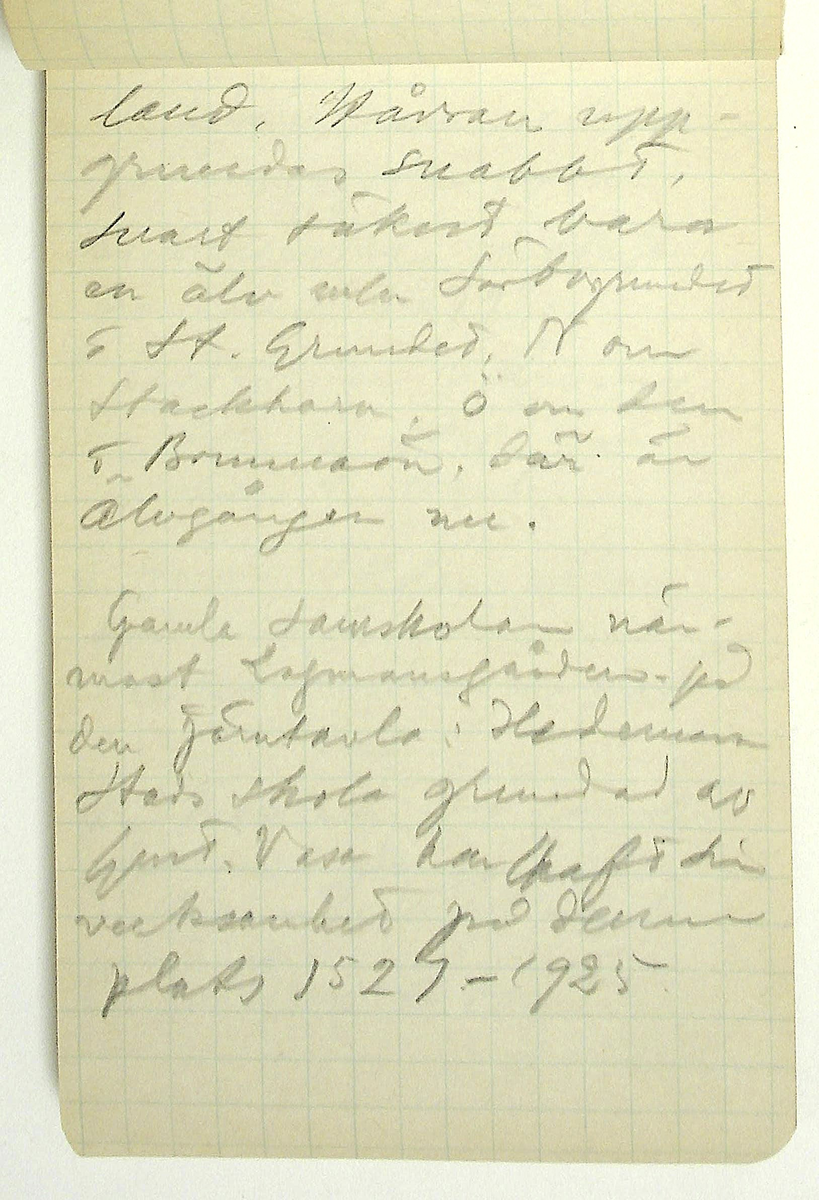 land. Hådran upp-
grundas snabbt,
snart säkert bara
en älv mln Sörbogrundet
o St. Grundet, N om
Stackharn, Ö om den
o Brunnaön. Där är
älvgången nu.
Gamla Samskolan när-
mast Lagmansgården på
den järntavla: Hedemora
Stads skola grundad av
Gust. Vasa har haft sin
verksamhet på denna
plats 1527–1925.